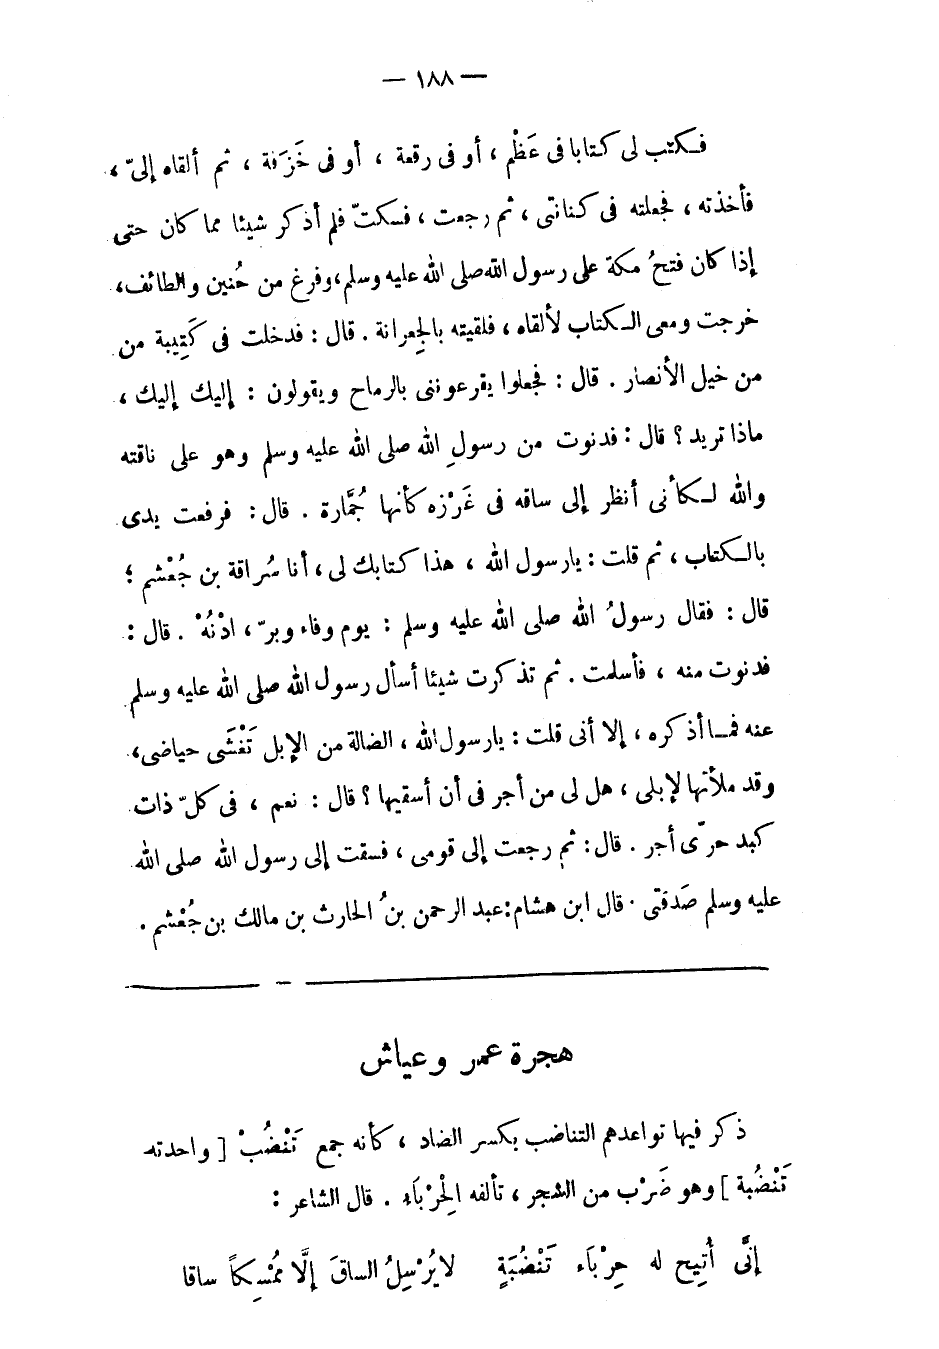 — ١٨٨ —
فكتب لى كتابا فى عَظْم ، أو فى رقعة ، أو فى خَزَفة ، ثم ألقاه إلىّ ،
فأخذته ، فجعلته فى كنانتى ، ثم رجعت ، فسكتّ فلم أذكر شيئا مما كان حتى
إذا كان فتحُ مكة على رسول الله صلى الله عليه وسلم ، وفرغ من حُنين والطائف ،
خرجت ومعى الكتاب لألقاه ، فلقيته بالجِعرانة . قال : فدخلت فى كَتِيبة من
من خيل الأنصار . قال : فجعلوا يقرعوننى بالرماح ويقولون : إليك إليك ،
ماذا تريد ؟ قال : فدنوت من رسولِ الله صلى الله عليه وسلم وهو على ناقته
والله لكأنى أنظر إلى ساقه فى غَرْزه كأنها جُمَّارة . قال : فرفعت يدى
بالكتاب ، ثم قلت : يارسول الله ، هذا كتابك لى ، أنا سُراقة بن جُعْشم ؛
قال : فقال رسولُ الله صلى الله عليه وسلم : يوم وفاء وبرّ ، ادْنُهْ . قال :
فدنوت منه ، فأسلمت . ثم تذكرت شيئا أسأل رسول الله صلى الله عليه وسلم
عنه فما أذكره ، إلا أنى قلت : يارسول الله ، الضالة من الإبل تَغْشَى حياضى ،
وقد ملأتها لإبلى ، هل لى من أجر فى أن أسقيها ؟ قال : نعم ، فى كلّ ذات
كبد حرّى أجر . قال : ثم رجعت إلى قومى ، فسقت إلى رسول الله صلى الله
عليه وسلم صَدقتى . قال ابن هشام : عبد الرحمن بنُ الحارث بن مالك بن جُعْشم .
هجرة عمر وعياش
ذكر فيها تواعدهم التناضب بكسر الضاد ، كأنه جمع تَنْضُبْ [ واحدته
تَنْضُبة ] وهو ضَرْب من الشجر ، تألفه الْحِرْبَاء . قال الشاعر :
إنَّى أُتِيح له حِرْبَاء تَنْضُبَةٍ لا يُرْسِلُ الساقَ إلَّا مُمْسِكاً ساقا